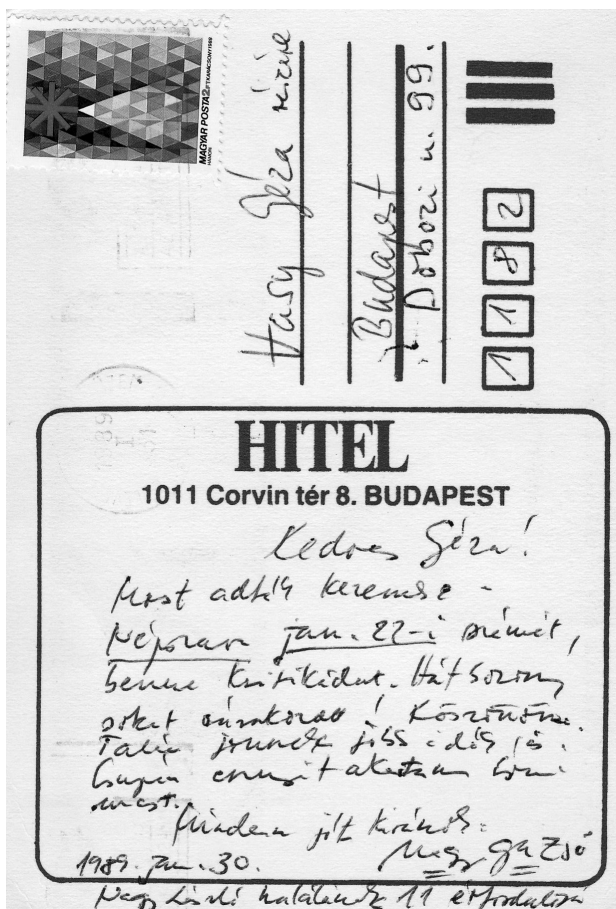 MAGYAR POSTA 2Ft
KARÁCSONY 1988
Vasy Géza részére
Budapest
Dobozi u. 99.
1182
HITEL
1011 Corvin tér 8. BUDAPEST
Kedves Géza!
Most adták kezembe a
Népszava jan. 22-i számát,
benne kritikádat. Hát bizony
sokat várakozott! Köszönöm.
Talán jönnek jobb idők is.
Csupán ennyit akartam írni
most.
Minden jót kívánok:
1989. jan. 30.
Nagy
Nagy László halálának 11 évfordulóján